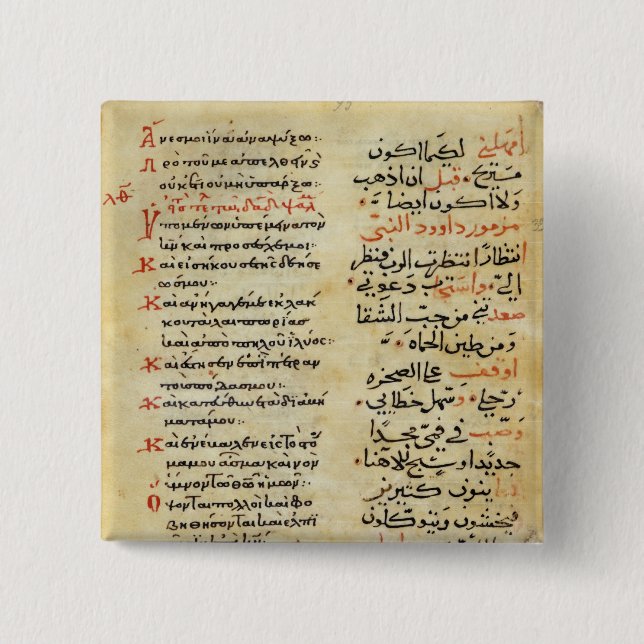 Ἄνες μοι ἵνα ἀναψύξω:·
Πρὸ τοῦ με ἀπελθεῖν καὶ
οὐκέτι οὐ μὴ ὑπάρξω:·
λθ
Ὑπομένων ὑπέμεινα τὸν
κν καὶ προσέσχε μοι:·
Καὶ εἰσήκουσε τῆς δεήσε
ώς μου:·
Καὶ ἀνήγαγέ με ἐκ λάκ
κου ταλαιπωρίας
καὶ ἀπὸ πηλοῦ ἰλύος:·
Καὶ ἔστησεν ἐπὶ πέτραν
τοὺς πόδας μου:·
Καὶ κατηύθυνε τὰ διαβή
ματά μου:·
Καὶ ἐνέβαλεν εἰς τὸ στό
μα μου ᾆσμα καινόν
ὕμνον τῷ θῷ ἡμῶν:·
Ὄψονται πολλοὶ καὶ φο
βηθήσονται καὶ ἐλπι
امهلني لكيما اكون
مستريح قبل ان اذهب
ولا اكون ايضا
مزمور داوود النبي
انتظارًا انتظرت الرب فنظر
اليّ واستجاب دعوتي
صعدني من جب الشقا
ومن طين الحماه
اوقف على الصخره
رجلي وسهل خطايي
وصب في فمي مجدًا
جديدا وتسبيح لالاهنا
ينون كثيرين
فيخشون ويتوكلون